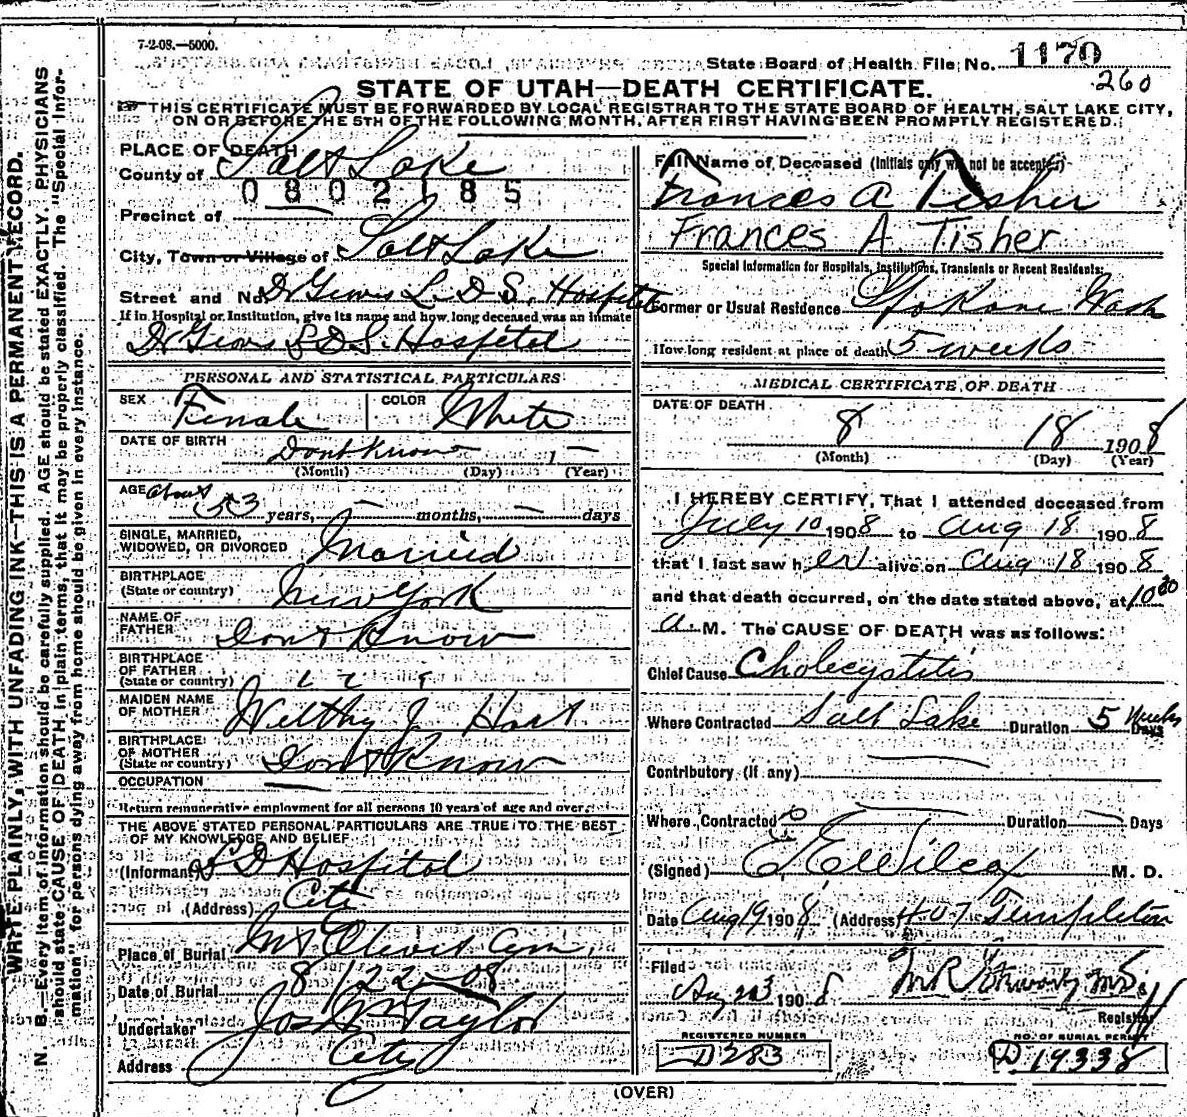 7-2-08.—5000.
State Board of Health File No. 1170
260
STATE OF UTAH—DEATH CERTIFICATE.
THIS CERTIFICATE MUST BE FORWARDED BY LOCAL REGISTRAR TO THE STATE BOARD OF HEALTH, SALT LAKE CITY,
ON OR BEFORE THE 5TH OF THE FOLLOWING MONTH, AFTER FIRST HAVING BEEN PROMPTLY REGISTERED.
WRITE PLAINLY, WITH UNFADING INK—THIS IS A PERMANENT RECORD.
N. B.—Every item of information should be carefully supplied. AGE should be stated EXACTLY. PHYSICIANS
should state CAUSE OF DEATH in plain terms, that it may be properly classified. The "Special Infor-
mation" for persons dying away from home should be given in every instance.
PLACE OF DEATH
County of Salt Lake
0802185
Precinct of
City, Town or Village of Salt Lake
Street and No. Dr Groves L. D. S. Hospital
If in Hospital or Institution, give its name and how long deceased was an inmate
Dr Groves L D S. Hospital
PERSONAL AND STATISTICAL PARTICULARS
SEX Female COLOR White
DATE OF BIRTH Dont Know
(Month) (Day) (Year)
AGE about 53 years, — months, — days
SINGLE, MARRIED,
WIDOWED, OR DIVORCED Married
BIRTHPLACE
(State or country) New York
NAME OF
FATHER Dont Know
BIRTHPLACE
OF FATHER
(State or country)
MAIDEN NAME
OF MOTHER Welthy J. Hart
BIRTHPLACE
OF MOTHER
(State or country) Dont Know
OCCUPATION —
Return remunerative employment for all persons 10 years of age and over
THE ABOVE STATED PERSONAL PARTICULARS ARE TRUE TO THE BEST
OF MY KNOWLEDGE AND BELIEF
(Informant) Hospital
(Address) City
Place of Burial Mt Olivet Cem,
Date of Burial 8/22-08
Undertaker Jos Wm Taylor
Address City
Full Name of Deceased (Initials only will not be accepted)
Frances A Tisher
Frances A. Tisher
Special Information for Hospitals, Institutions, Transients or Recent Residents:
Former or Usual Residence Spokane Wash
How long resident at place of death 5 weeks
MEDICAL CERTIFICATE OF DEATH
DATE OF DEATH
8 18 1908
(Month) (Day) (Year)
I HEREBY CERTIFY, That I attended deceased from
July 10 1908 to Aug 18 1908
that I last saw her alive on Aug 18 1908
and that death occurred, on the date stated above, at 10 30
a. M. The CAUSE OF DEATH was as follows:
Chief Cause Cholecystitis
Where Contracted Salt Lake Duration 5 Weeks Days
Contributory (If any)
Where Contracted Duration — Days
(Signed) E E Wilcox M. D.
Date Aug 19 1908 (Address) 407 Templeton
Filed
Aug 23 1908 M R Stewart M.D.
Registrar
REGISTERED NUMBER
D283
NO. OF BURIAL PERMIT
D 19338
(OVER)